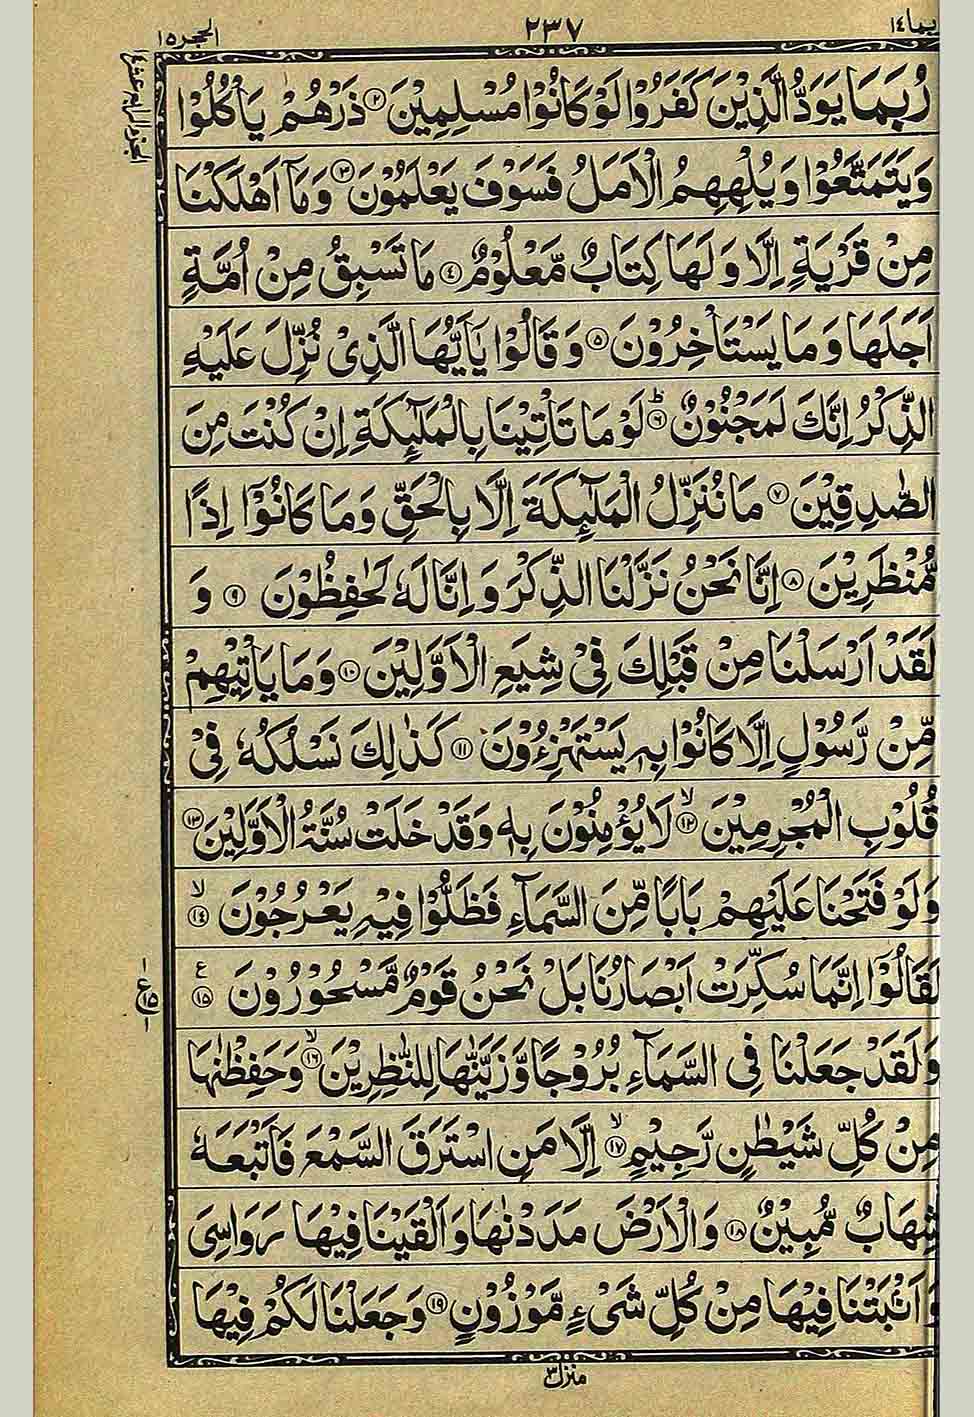 ربما ١٤
٢٣٧
الحجر ١٥
الجزء الرابع عشر ١٤
رُبَمَا يَوَدُّ الَّذِيْنَ كَفَرُوْا لَوْ كَانُوْا مُسْلِمِيْنَ ٢ ذَرْهُمْ يَاْكُلُوْا
وَيَتَمَتَّعُوْا وَيُلْهِهِمُ الْاَمَلُ فَسَوْفَ يَعْلَمُوْنَ ٣ وَمَاۤ اَهْلَكْنَا
مِنْ قَرْيَةٍ اِلَّا وَلَهَا كِتَابٌ مَّعْلُوْمٌ ٤ مَا تَسْبِقُ مِنْ اُمَّةٍ
اَجَلَهَا وَمَا يَسْتَاْخِرُوْنَ ٥ وَقَالُوْا يٰۤاَيُّهَا الَّذِىْ نُزِّلَ عَلَيْهِ
الذِّكْرُ اِنَّكَ لَمَجْنُوْنٌ ٦ؕ لَوْ مَا تَاْتِيْنَا بِالْمَلٰٓئِكَةِ اِنْ كُنْتَ مِنَ
الصّٰدِقِيْنَ ٧ مَا نُنَزِّلُ الْمَلٰٓئِكَةَ اِلَّا بِالْحَقِّ وَمَا كَانُوْۤا اِذًا
مُّنْظَرِيْنَ ٨ اِنَّا نَحْنُ نَزَّلْنَا الذِّكْرَ وَاِنَّا لَهٗ لَحٰفِظُوْنَ ٩ وَ
لَقَدْ اَرْسَلْنَا مِنْ قَبْلِكَ فِىْ شِيَعِ الْاَوَّلِيْنَ ١٠ وَمَا يَاْتِيْهِمْ
مِّنْ رَّسُوْلٍ اِلَّا كَانُوْا بِهٖ يَسْتَهْزِءُوْنَ ١١ كَذٰلِكَ نَسْلُكُهٗ فِىْ
قُلُوْبِ الْمُجْرِمِيْنَ ١٢ۙ لَا يُؤْمِنُوْنَ بِهٖ وَقَدْ خَلَتْ سُنَّةُ الْاَوَّلِيْنَ ١٣
وَلَوْ فَتَحْنَا عَلَيْهِمْ بَابًا مِّنَ السَّمَآءِ فَظَلُّوْا فِيْهِ يَعْرُجُوْنَ ١٤ۙ
لَقَالُوْۤا اِنَّمَا سُكِّرَتْ اَبْصَارُنَا بَلْ نَحْنُ قَوْمٌ مَّسْحُوْرُوْنَ ١٥ ع
ع ١٥
وَلَقَدْ جَعَلْنَا فِى السَّمَآءِ بُرُوْجًا وَّزَيَّنّٰهَا لِلنّٰظِرِيْنَ ١٦ۙ وَحَفِظْنٰهَا
مِنْ كُلِّ شَيْطٰنٍ رَّجِيْمٍ ١٧ۙ اِلَّا مَنِ اسْتَرَقَ السَّمْعَ فَاَتْبَعَهٗ
شِهَابٌ مُّبِيْنٌ ١٨ وَالْاَرْضَ مَدَدْنٰهَا وَاَلْقَيْنَا فِيْهَا رَوَاسِىَ
وَاَنْۢبَتْنَا فِيْهَا مِنْ كُلِّ شَىْءٍ مَّوْزُوْنٍ ١٩ وَجَعَلْنَا لَكُمْ فِيْهَا
منزل ٣